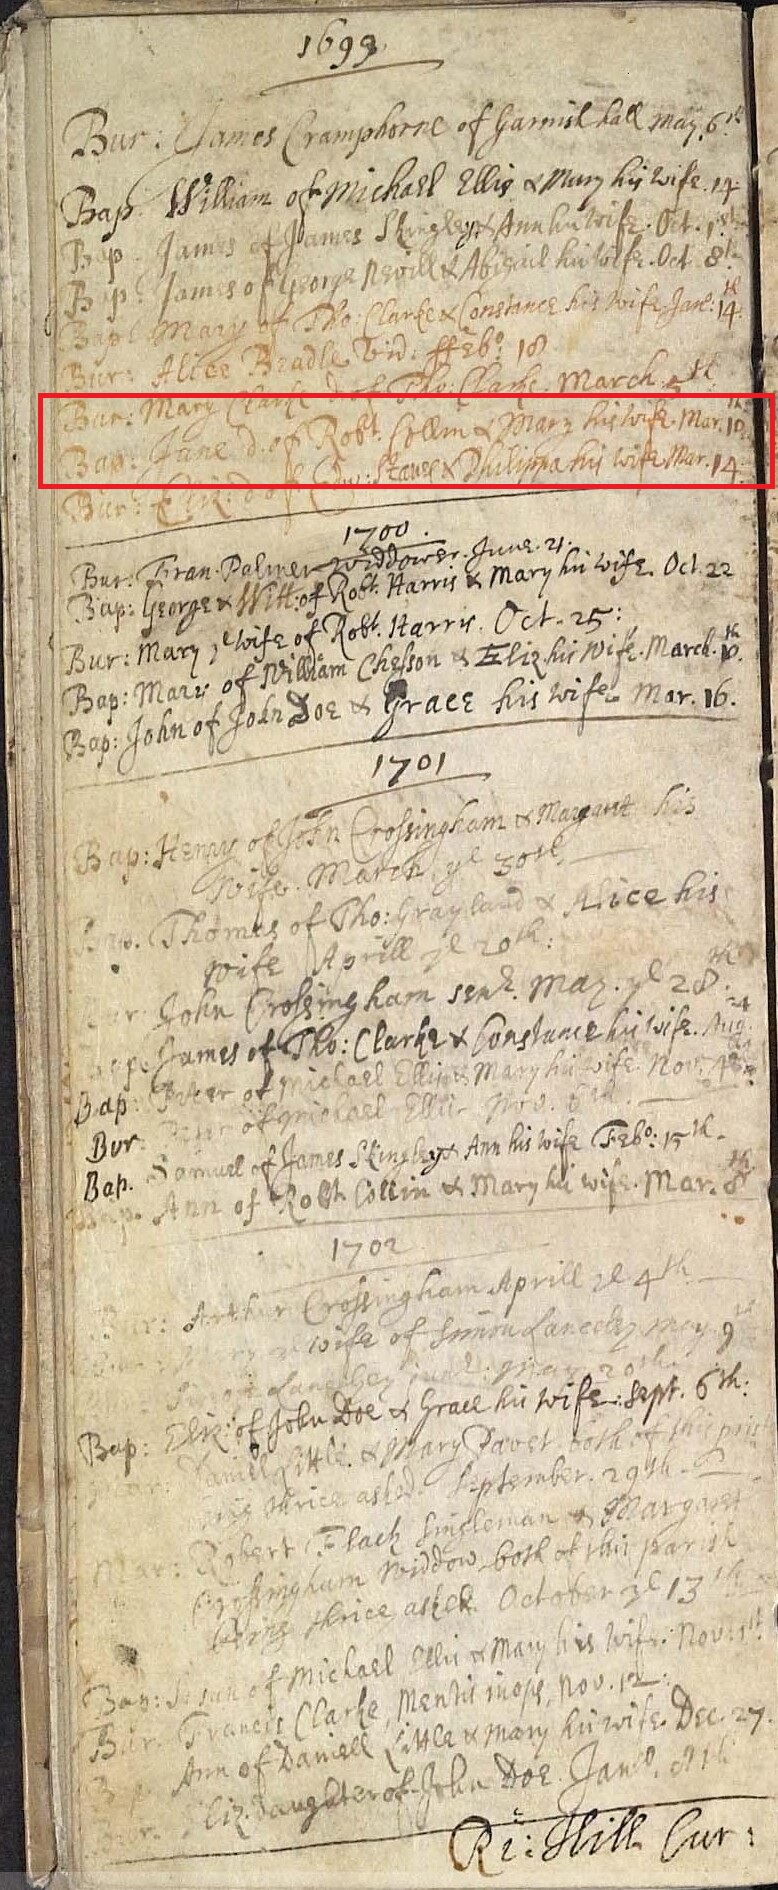 1699
Bur: James Cramphorne of Garnish hall May. 6th
Bap: William of Michael Ellis & Mary his wife. 14
Bap: James of James Skingley & Ann his wife. Oct. 1st
Bap: James of George Nevill & Abigail his wife. Oct 8th
Bap: Mary of Tho: Clarke & Constance his wife. Jan: 14th
Bur: Alice Bradle Vid: ffebo: 18
Bur: Mary Clarke d. of Tho: Clarke. March. 5th
Bap: Jane d. of Robt. Collin & Mary his wife. Mar. 10th
Bur: Eliz: d. of Edw: & Philippa his wife Mar. 14
1700.
Bur: Fran. Palmer widdower. June. 21.
Bap: George & Will: of Robt. Harris & Mary his wife. Oct. 22
Bur: Mary ye wife of Robt. Harris. Oct. 25:
Bap: Mary of William Chesson & Eliz his wife. March. 10th.
Bap: John of John Doe & Grace his wife. Mar. 16.
1701
Bap: Henry of John Crossingham & Margaret his
wife. March. ye 30th.
Bap. Thomas of Tho: Grayland & Alice his
wife Aprill ye 20th:
Bur John Crossingham senr. May. ye 28th.
Bap. James of Tho: Clarke & Constance his wife. Aug. 24
Bap: Peter of Michael Ellis & Mary his wife. Nov. 4th
Bur: Peter of Michael Ellis Nov. 6th.
Bap. Samuel of James Skingley & Ann his wife Febo: 15th.
Bap. Ann of Robt. Collin & Mary his wife. Mar. 8th
1702
Bur: Arthur Crossingham Aprill ye 4th
Bur: Mary ye wife of Simon May. 9th
Simon junr: May 20th
Bap: Eliz: of John Doe & Grace his wife: Sept. 6th:
Mar: Daniel Little. & Mary Pavet both of this prish
being thrice asked. September. 29th
Mar: Robert Flack singleman & Margaret
Crossingham widdow both of this parish
being thrice asked. October ye 13th
Bap: Susan of Michael Ellis & Mary his wife. Nov: 1st
Bur. Francis Clarke, mentis inops, Nov. 12:
Bap Ann of Daniell Little & Mary his wife. Dec. 27.
Bur. Eliz. Daughter of John Doe. Jano.
Ri: Hill Cur: